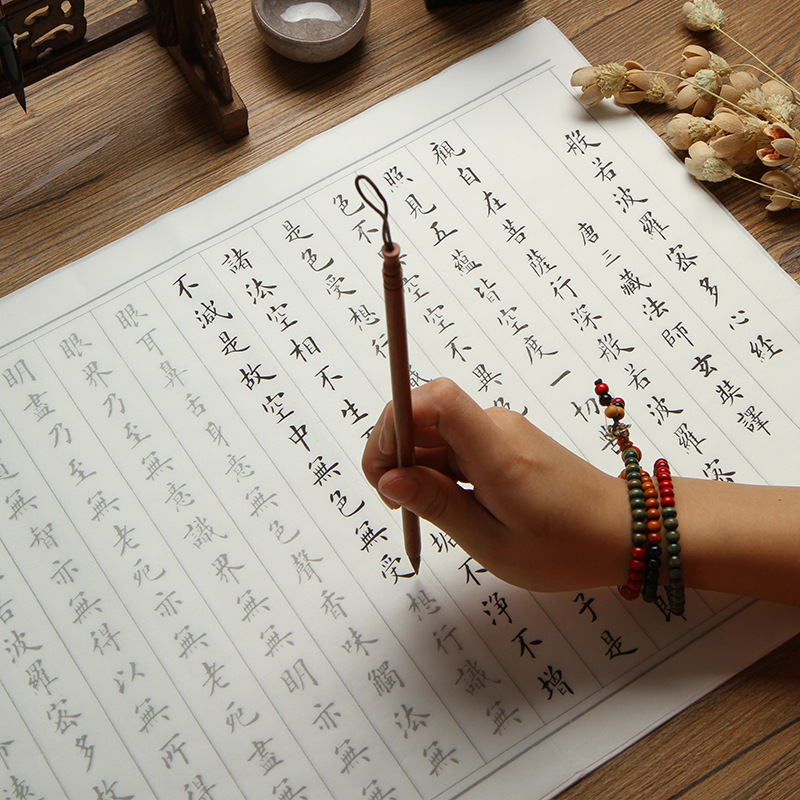 般若波羅密多心經
唐三藏法師玄奘譯
觀自在菩薩行深般若波羅密
照見五蘊皆空度一切苦
色不空空不異色即
是色受想行子是
諸法空相不生垢不淨不增
不減是故空中無色無受想行識無
眼耳鼻舌身意無色聲香味觸法無
眼界乃至無意識界無無明亦無無
明盡乃至無老死亦無老死盡無
道無智亦無得以無所得
若波羅密多故